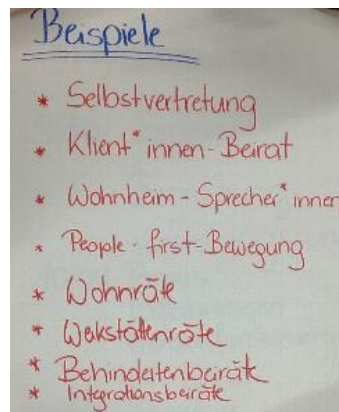 Beispiele
* Selbstvertretung
* Klient*innen-Beirat
* Wohnheim-Sprecher*innen
* People-first-Bewegung
* Wohnräte
* Wekstättenräte
* Behindertenbeiräte
* Integrationsbeiräte